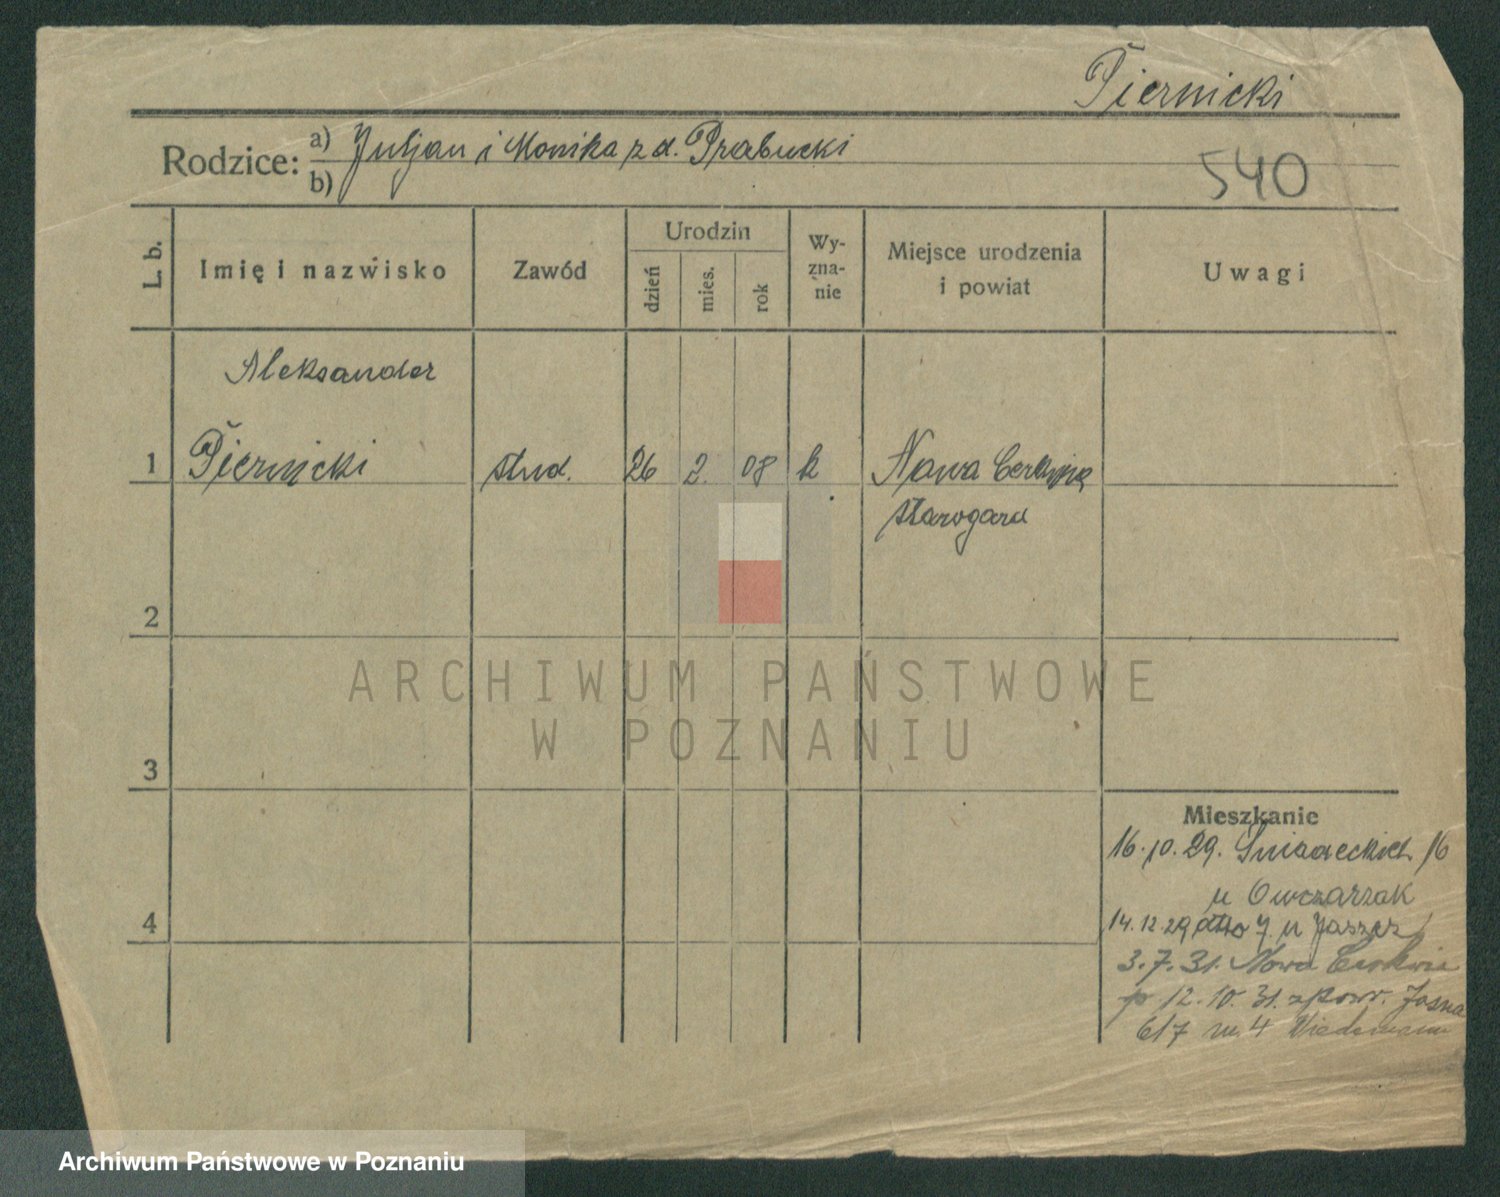 Piernicki
Rodzice: a) Juljan i Monika z d. Prabucki
b)
540
L. b.
Imię i nazwisko
Zawód
Urodzin
dzień
mies.
rok
Wy-
zna-
nie
Miejsce urodzenia
i powiat
Uwagi
Aleksander
1 Piernicki stud. 26 2. 08 k Nowa Cerkwia
Starogard
2
3
4
Mieszkanie
16.10.29. Śniadeckich 16
u Owczarzak
14.12.29 dtto 7. u
3.7.31. Nowa Cerkwia
p 12.10.31. z pow. Jasna
6/7 m. 4 Wiedemann
ARCHIWUM PAŃSTWOWE
W POZNANIU
Archiwum Państwowe w Poznaniu